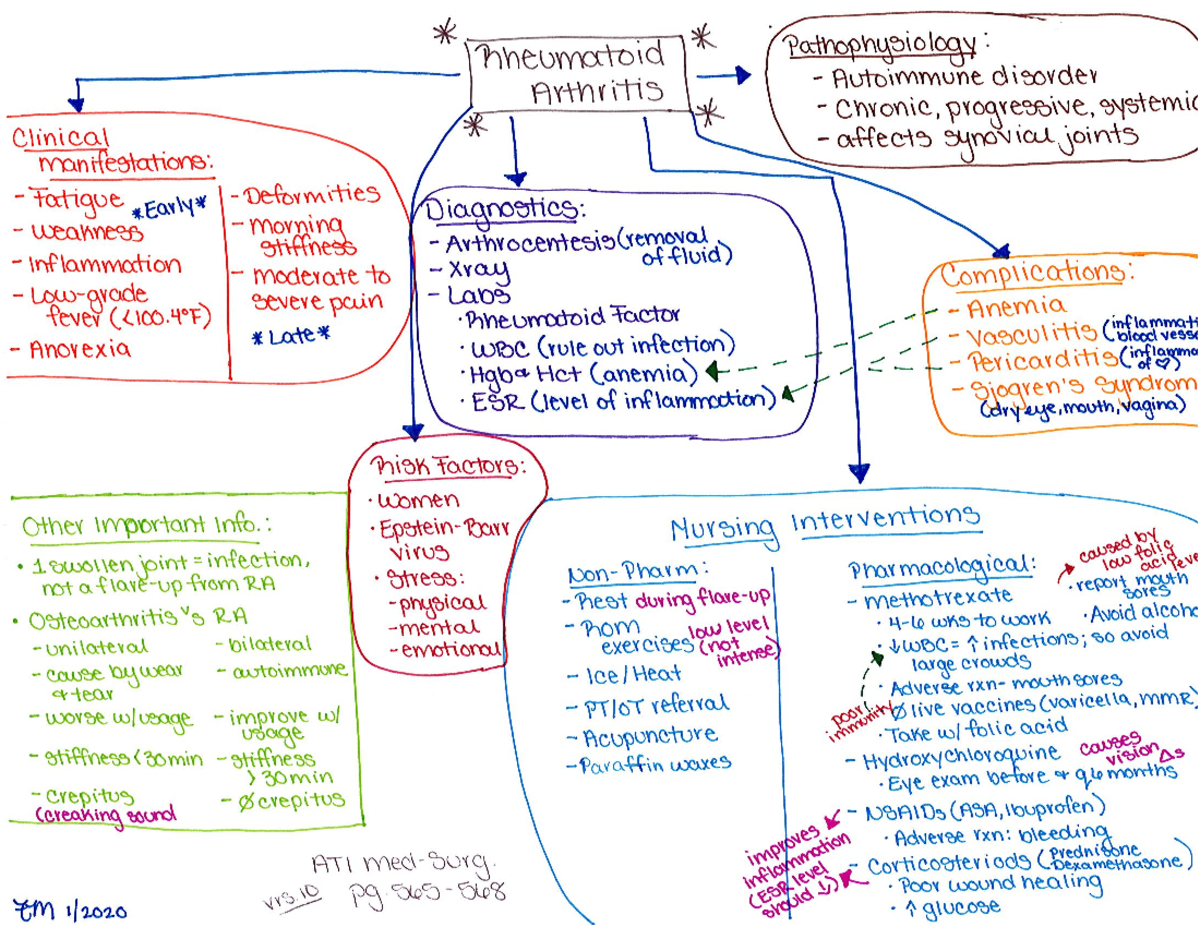 Rheumatoid
Arthritis
Pathophysiology:
- Autoimmune disorder
- Chronic, progressive, systemic
- affects synovial joints
Clinical
manifestations:
- Fatigue
*Early*
- weakness
- Inflammation
- Low-grade
fever (<100.4°F)
- Anorexia
- Deformities
- morning
stiffness
- moderate to
severe pain
*Late*
Diagnostics:
- Arthrocentesis (removal
of fluid)
- Xray
- Labs
· Rheumatoid Factor
· WBC (rule out infection)
· Hgb & Hct (anemia)
· ESR (level of inflammation)
Complications:
- Anemia
- Vasculitis (inflammati
blood vesse
- Pericarditis (inflamma
of ♡)
- Sjogren's Syndrom
(dry eye, mouth, vagina)
Risk Factors:
· Women
· Epstein-Barr
virus
· Stress:
- physical
- mental
- emotional
Other Important Info.:
• 1 swollen joint = infection,
not a flare-up from RA
• Osteoarthritis vs RA
- unilateral - bilateral
- cause by wear - autoimmune
& tear
- worse w/usage - improve w/
usage
- stiffness < 30 min - stiffness
> 30 min
- crepitus - Ø crepitus
(creaking sound
Nursing Interventions
Non-Pharm:
- Rest during flare-up
- Rom
exercises (low level
(not
intense)
- Ice/Heat
- PT/OT referral
- Acupuncture
- Paraffin waxes
Pharmacological:
caused by
low folic
acid leve
· report mouth
sores
- methotrexate
· 4-6 wks to work
· Avoid alcoho
· ↓ WBC = ↑ infections; so avoid
large crowds
· Adverse rxn- mouth sores
poor
immunity
· Ø live vaccines (varicella, MMR)
· Take w/ folic acid
- Hydroxychloroquine
causes
vision Δs
· Eye exam before & q6 months
- NSAIDs (ASA, Ibuprofen)
· Adverse rxn: bleeding
improves
inflammation
(ESR level
should ↓)
- Corticosteriods (Prednisone
Dexamethasone)
· Poor wound healing
· ↑ glucose
ATI med-surg.
vrs.10 pg. 565-568
1/2020